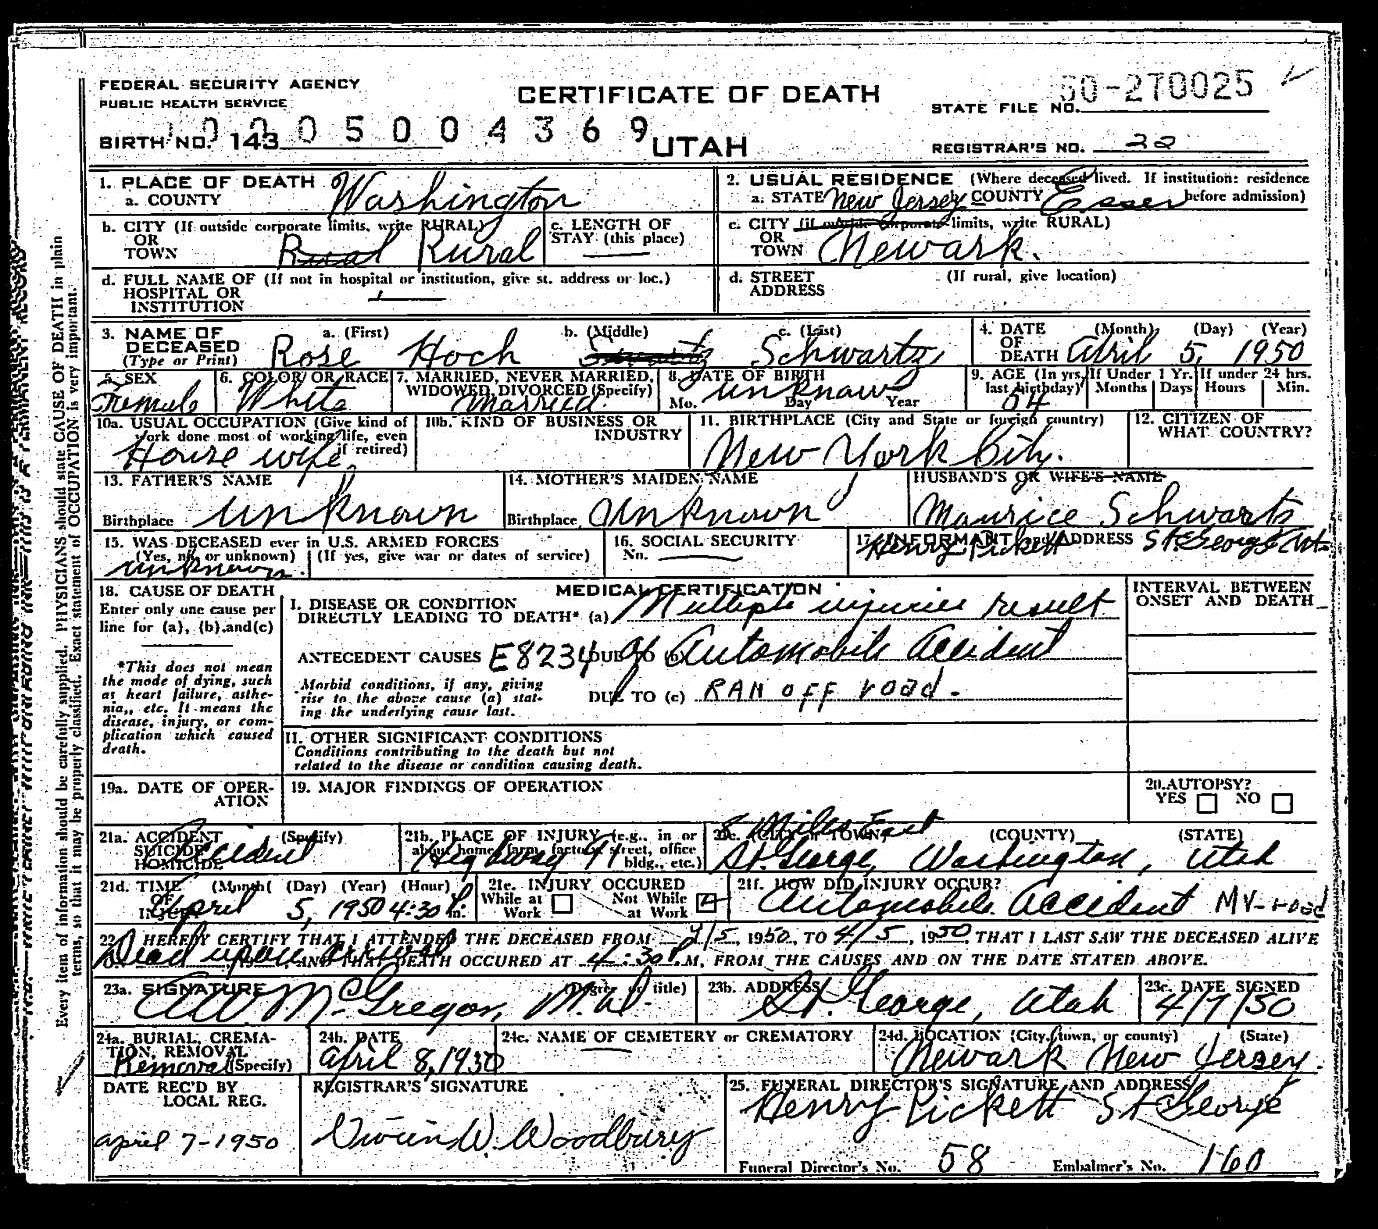 FEDERAL SECURITY AGENCY
PUBLIC HEALTH SERVICE
CERTIFICATE OF DEATH
STATE FILE NO. 50-270025
BIRTH NO. 143
0005004369
UTAH
REGISTRAR'S NO. 32
1. PLACE OF DEATH
a. COUNTY Washington
2. USUAL RESIDENCE (Where deceased lived. If institution: residence before admission)
a. STATE New Jersey COUNTY Essex
b. CITY (If outside corporate limits, write RURAL) OR TOWN Rural Rural
c. LENGTH OF STAY (this place)
c. CITY (if outside corporate limits, write RURAL) OR TOWN Newark.
d. FULL NAME OF (If not in hospital or institution, give st. address or loc.) HOSPITAL OR INSTITUTION
d. STREET ADDRESS (If rural, give location)
3. NAME OF DECEASED (Type or Print)
a. (First) b. (Middle) c. (Last)
Rose Hoch Swartz Schwartz
4. DATE OF DEATH (Month) (Day) (Year)
April 5, 1950
5. SEX Female
6. COLOR OR RACE White
7. MARRIED, NEVER MARRIED, WIDOWED, DIVORCED (Specify) Married
8. DATE OF BIRTH Mo. Day Year unknown
9. AGE (In yrs. last birthday) 54
If Under 1 Yr. Months Days
If under 24 hrs. Hours Min.
10a. USUAL OCCUPATION (Give kind of work done most of working life, even if retired) House wife
10b. KIND OF BUSINESS OR INDUSTRY
11. BIRTHPLACE (City and State or foreign country) New York City.
12. CITIZEN OF WHAT COUNTRY?
13. FATHER'S NAME
Birthplace Unknown
14. MOTHER'S MAIDEN NAME
Birthplace Unknown
HUSBAND'S OR WIFE'S NAME
Maurice Schwartz
15. WAS DECEASED ever in U.S. ARMED FORCES
(Yes, no, or unknown) (If yes, give war or dates of service)
unknown.
16. SOCIAL SECURITY
No.
17. INFORMANT and ADDRESS
Henry Pickett St George Ut.
18. CAUSE OF DEATH
Enter only one cause per line for (a), (b), and (c)
*This does not mean the mode of dying, such as heart failure, asthenia, etc. It means the disease, injury, or complication which caused death.
MEDICAL CERTIFICATION
INTERVAL BETWEEN ONSET AND DEATH
I. DISEASE OR CONDITION DIRECTLY LEADING TO DEATH* (a) Multiple injuries result
ANTECEDENT CAUSES E8234 DUE TO (b) of Automobile accident
Morbid conditions, if any, giving rise to the above cause (a) stating the underlying cause last.
DUE TO (c) RAN OFF road.
II. OTHER SIGNIFICANT CONDITIONS
Conditions contributing to the death but not related to the disease or condition causing death.
19a. DATE OF OPERATION
19. MAJOR FINDINGS OF OPERATION
20. AUTOPSY?
YES NO
21a. ACCIDENT SUICIDE HOMICIDE (Specify) Accident
21b. PLACE OF INJURY (e.g., in or about home, farm, factory, street, office bldg., etc.) Highway 91
21c. (CITY or TOWN) (COUNTY) (STATE)
8 Miles East
St. George, Washington, Utah
21d. TIME OF INJURY (Month) (Day) (Year) (Hour)
April 5, 1950 4:30 P.m.
21e. INJURY OCCURED
While at Work Not While at Work
21f. HOW DID INJURY OCCUR?
Automobile accident MV-road
22. I HEREBY CERTIFY THAT I ATTENDED THE DECEASED FROM 4/5, 1950, TO 4/5, 1950 THAT I LAST SAW THE DECEASED ALIVE
Dead upon arrival, AND THAT DEATH OCCURED AT 4:30 P.M, FROM THE CAUSES AND ON THE DATE STATED ABOVE.
23a. SIGNATURE (Degree or title)
AW McGregor, M.D.
23b. ADDRESS
St. George, Utah
23c. DATE SIGNED
4/7/50
24a. BURIAL, CREMATION, REMOVAL (Specify) Removal
24b. DATE April 8, 1950
24c. NAME OF CEMETERY or CREMATORY
24d. LOCATION (City, town, or county) (State)
Newark New Jersey.
DATE REC'D BY LOCAL REG.
April 7-1950
REGISTRAR'S SIGNATURE
Woodbury
25. FUNERAL DIRECTOR'S SIGNATURE AND ADDRESS
Henry Pickett St George
Funeral Director's No. 58 Embalmer's No. 160
Every item of information should be carefully supplied. PHYSICIANS should state CAUSE OF DEATH in plain
terms, so that it may be properly classified. Exact statement of OCCUPATION is very important.